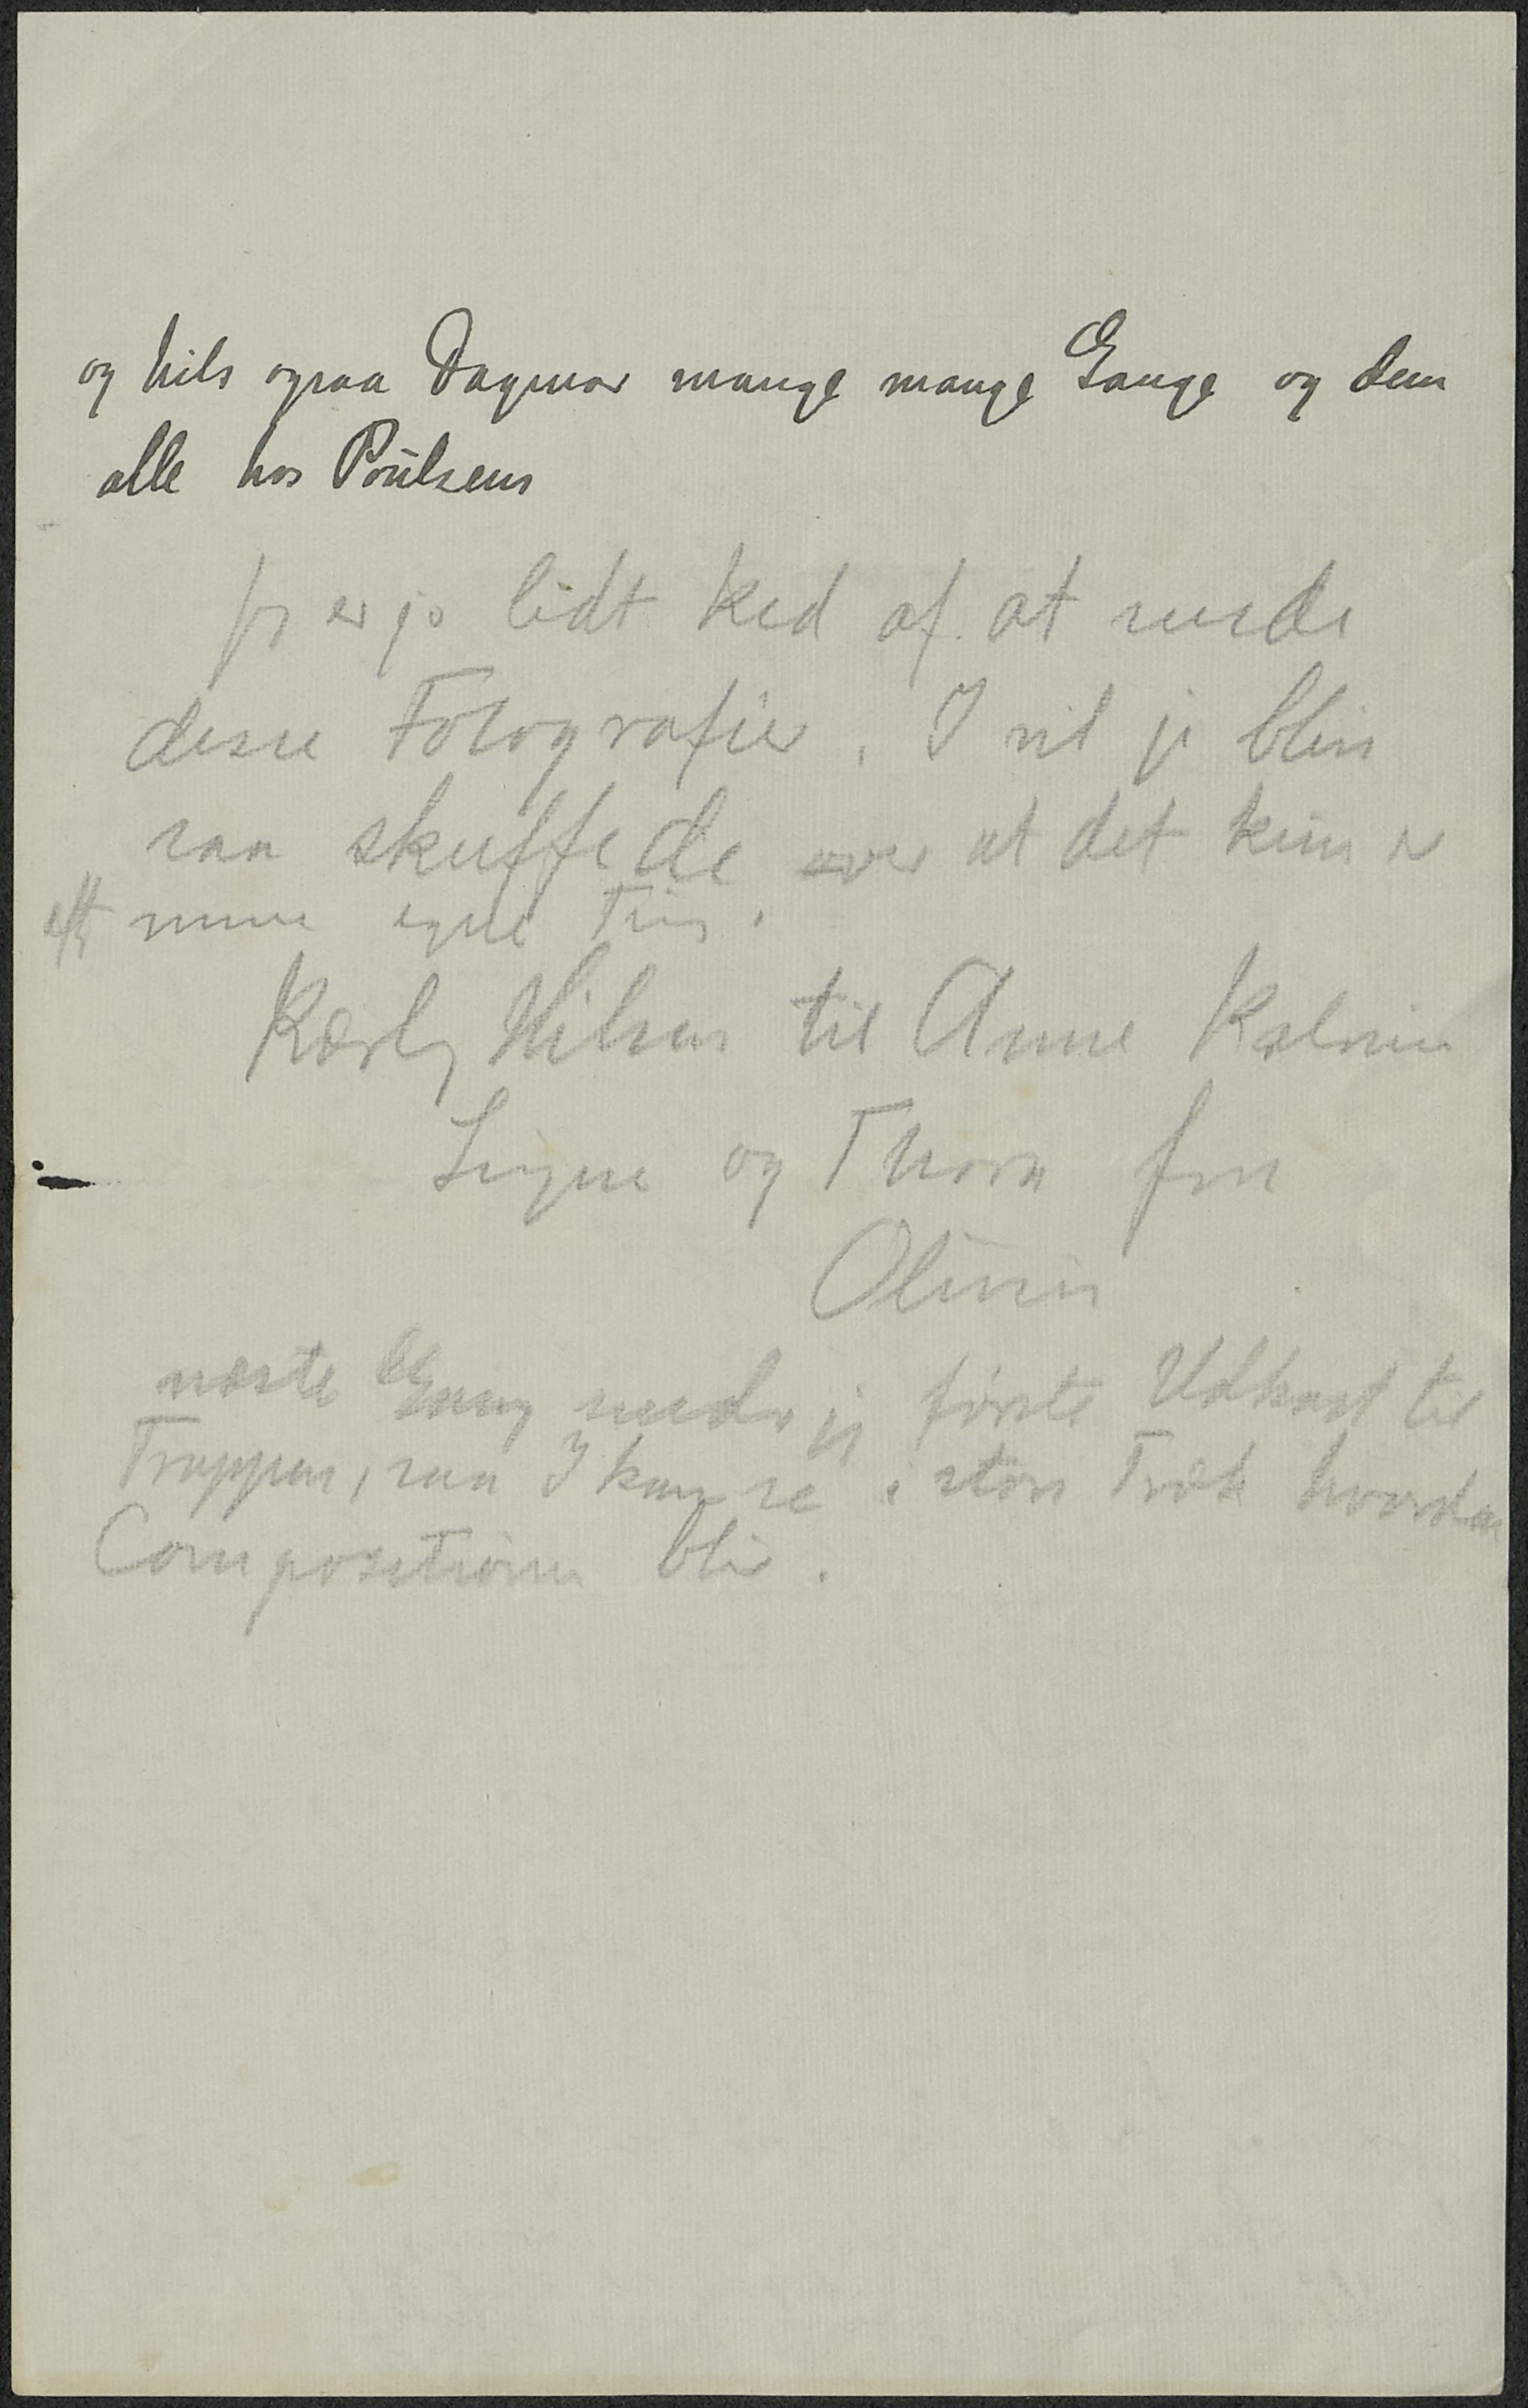 og hils ogsaa Dagmar mange mange Gange og dem
alle hos Poulsens
jeg er jo lidt ked af at sende
disse Fotografier, I vil jo blive
saa skuffede over at det kun er
efter mine egne Ting.
Kærlig Hilsen til Anne Kalvine
Signe og Thora fra
Olivia
næste Gang sender jeg første Udkast til
Trappen, saa I kan se i store Træk hvordan
Compositionen bliver.